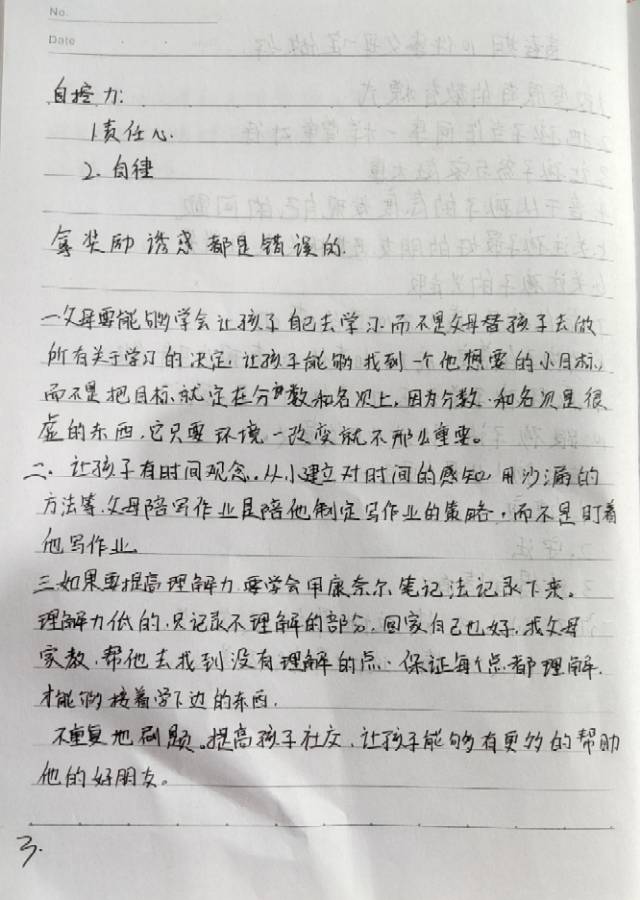 No.
Date
自控力:
1责任心.
2. 自律
拿奖励诱惑都是错误的.
一父母要能够学会让孩子自己去学习而不是父母替孩子去做
所有关于学习的决定.让孩子能够找到一个他想要的小目标.
而不是把目标就定在分数和名次上,因为分数.和名次是很
虚的东西,它只要环境一改变就不那么重要。
二.让孩子有时间观念.从小建立对时间的感知用沙漏的
方法等.父母陪写作业是陪他制定写作业的策略,而不是盯着
他写作业.
三.如果要提高理解力.要学会用康奈尔笔记法记录下来。
理解力低的,只记录不理解的部分.回家自己也好.或父母
家教.帮他去找到没有理解的点.保证每个点都理解.
才能够接着学下边的东西.
不重复地刷题。提高孩子社交.让孩子能够有更多的帮助
他的好朋友。
3.